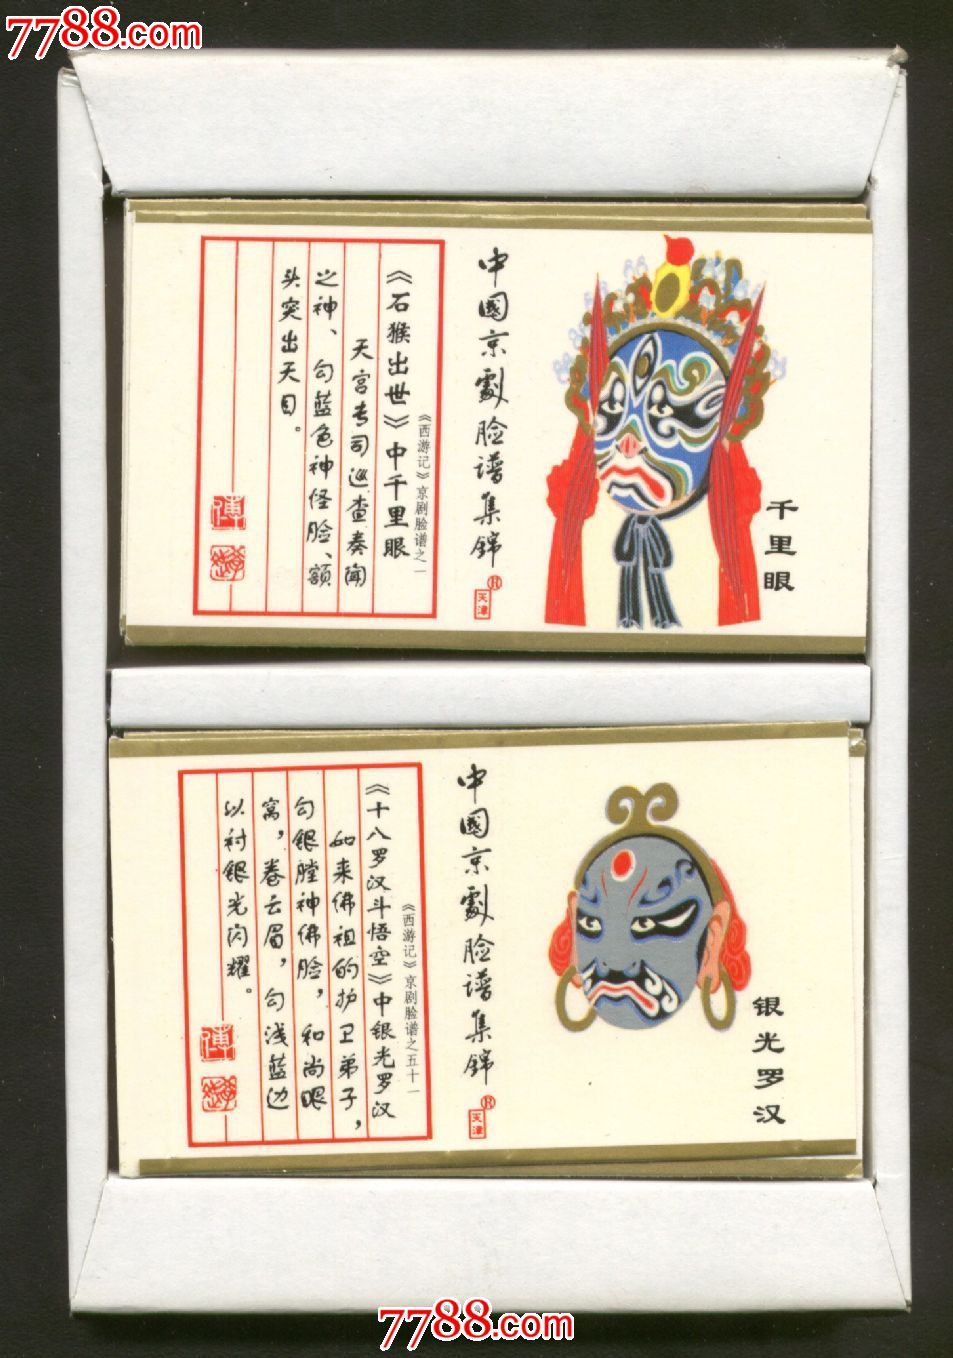 7788.com
《石猴出世》中千里眼
天宫专司巡查奏闻
之神、勾蓝色神怪脸、额
头突出天目。
《西游记》京剧脸谱之一
中國京劇脸谱集锦
天津
®
千里眼
《十八罗汉斗悟空》中银光罗汉
如来佛祖的护卫弟子，
勾银膛神佛脸，和尚眼
窝，卷云眉，勾浅蓝边
以衬银光闪耀。
《西游记》京剧脸谱之五十一
中國京劇脸谱集锦
天津
®
银光罗汉
7788.com